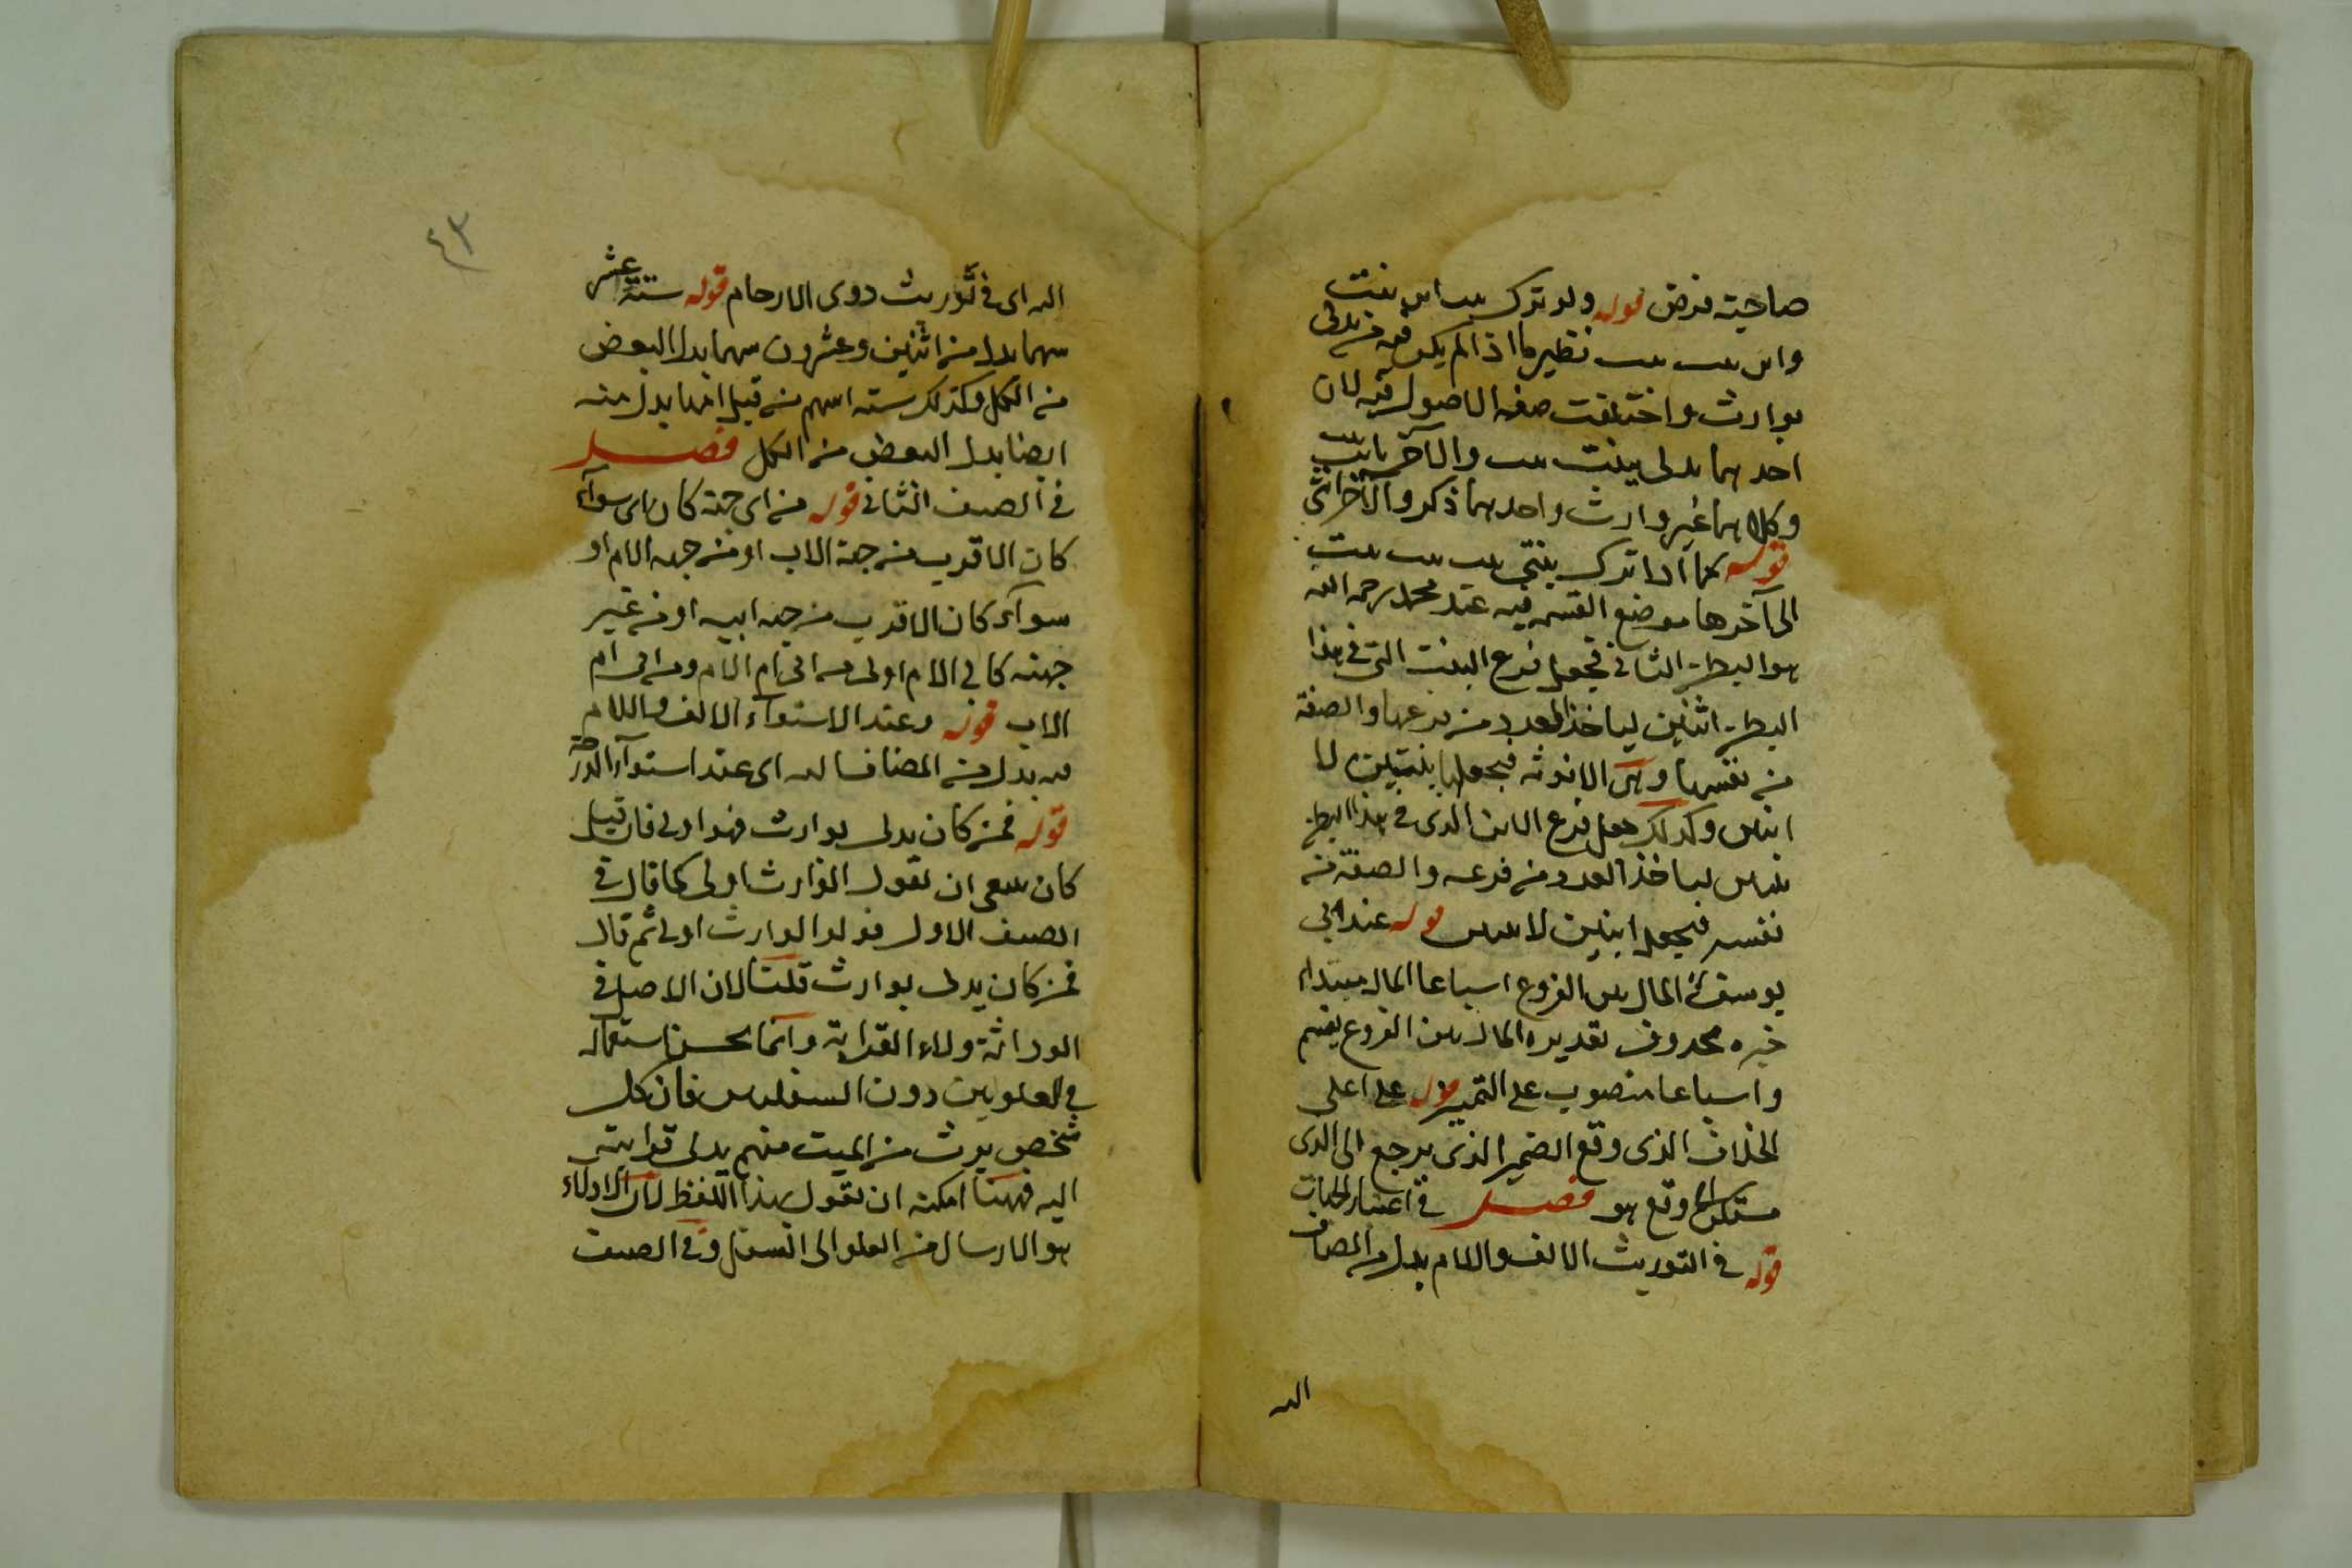 صاحبة فرض قوله ولو ترك بنت ابن بنت
وابن بنت بنت نظير ما اذا لم يكن فيه من يدلى
بوارث واختلفت صفة الاصول فيه لان
احدهما يدلى ببنت بنت والاخر بابن بنت
وكلاهما غير وارث واحدهما ذكر والآخر انثى
قوله كما اذا ترك بنتى بنت بنت بنت
الى آخرها موضع القسمة فيه عند محمد رحمه الله
هو البطن الثانى فيجعل فرع البنت التى فى هذا
البطن اثنين لياخذ العدد من فرعها والصفة
من نفسها وهى الانوثة فيجعلها بنتين لا
ابنين وكذلك يجعل فرع الابن الذى فى هذا البطن
بنتين لياخذ العدد من فرعه والصفة من
نفسه فيجعل ابنين لا بنتين قوله عند ابى
يوسف المال بين الفروع اسباعا المال مبتداء
خبره محذوف تقديره المال بين الفروع يقسم
واسباعا منصوب على التمييز قوله على اعلى
الخلاف الذى وقع الضمير الذى يرجع الى الذى
مستكن فى وقع هو فصل فى اعتبار الجهات
قوله فى التوريث الالف واللام بدل من المضاف
اليه
٤٣
اليه اى فى توريث ذوى الارحام قوله ستة عشر
سهما بدل من اثنين وعشرون سهما بدل البعض
من الكل وكذلك ستة اسهم من قبل امها بدل منه
ايضا بدل البعض من الكل فصل
فى الصنف الثانى قوله من اى جهة كان اى سوآء
كان الاقرب من جهة الاب او من جهة الام او
سوآء كان الاقرب من جهة ابيه او من غير
جهته كاب الام اولى من اب ام الام ومن اب ام
الاب قوله وعند الاستوآء الالف واللام
فيه بدل من المضاف اليه اى عند استوآء الدرجة
قوله فمن كان يدلى بوارث فهو اولى فان قيل
كان ينبغى ان يقول الوارث اولى كما قال فى
الصنف الاول فولد الوارث اولى ثم قال
فمن كان يدلى بوارث قلنا لان الاصل فى
الوراثة ولاء القرابة وانما يحسن استعماله
فى العلويين دون السفليين فان كل
شخص يرث من الميت منهم يدلى قرابته
اليه فههنا امكنه ان يقول بهذا اللفظ لان الادلاء
هو الارسال من العلو الى السفل وفى الصنف